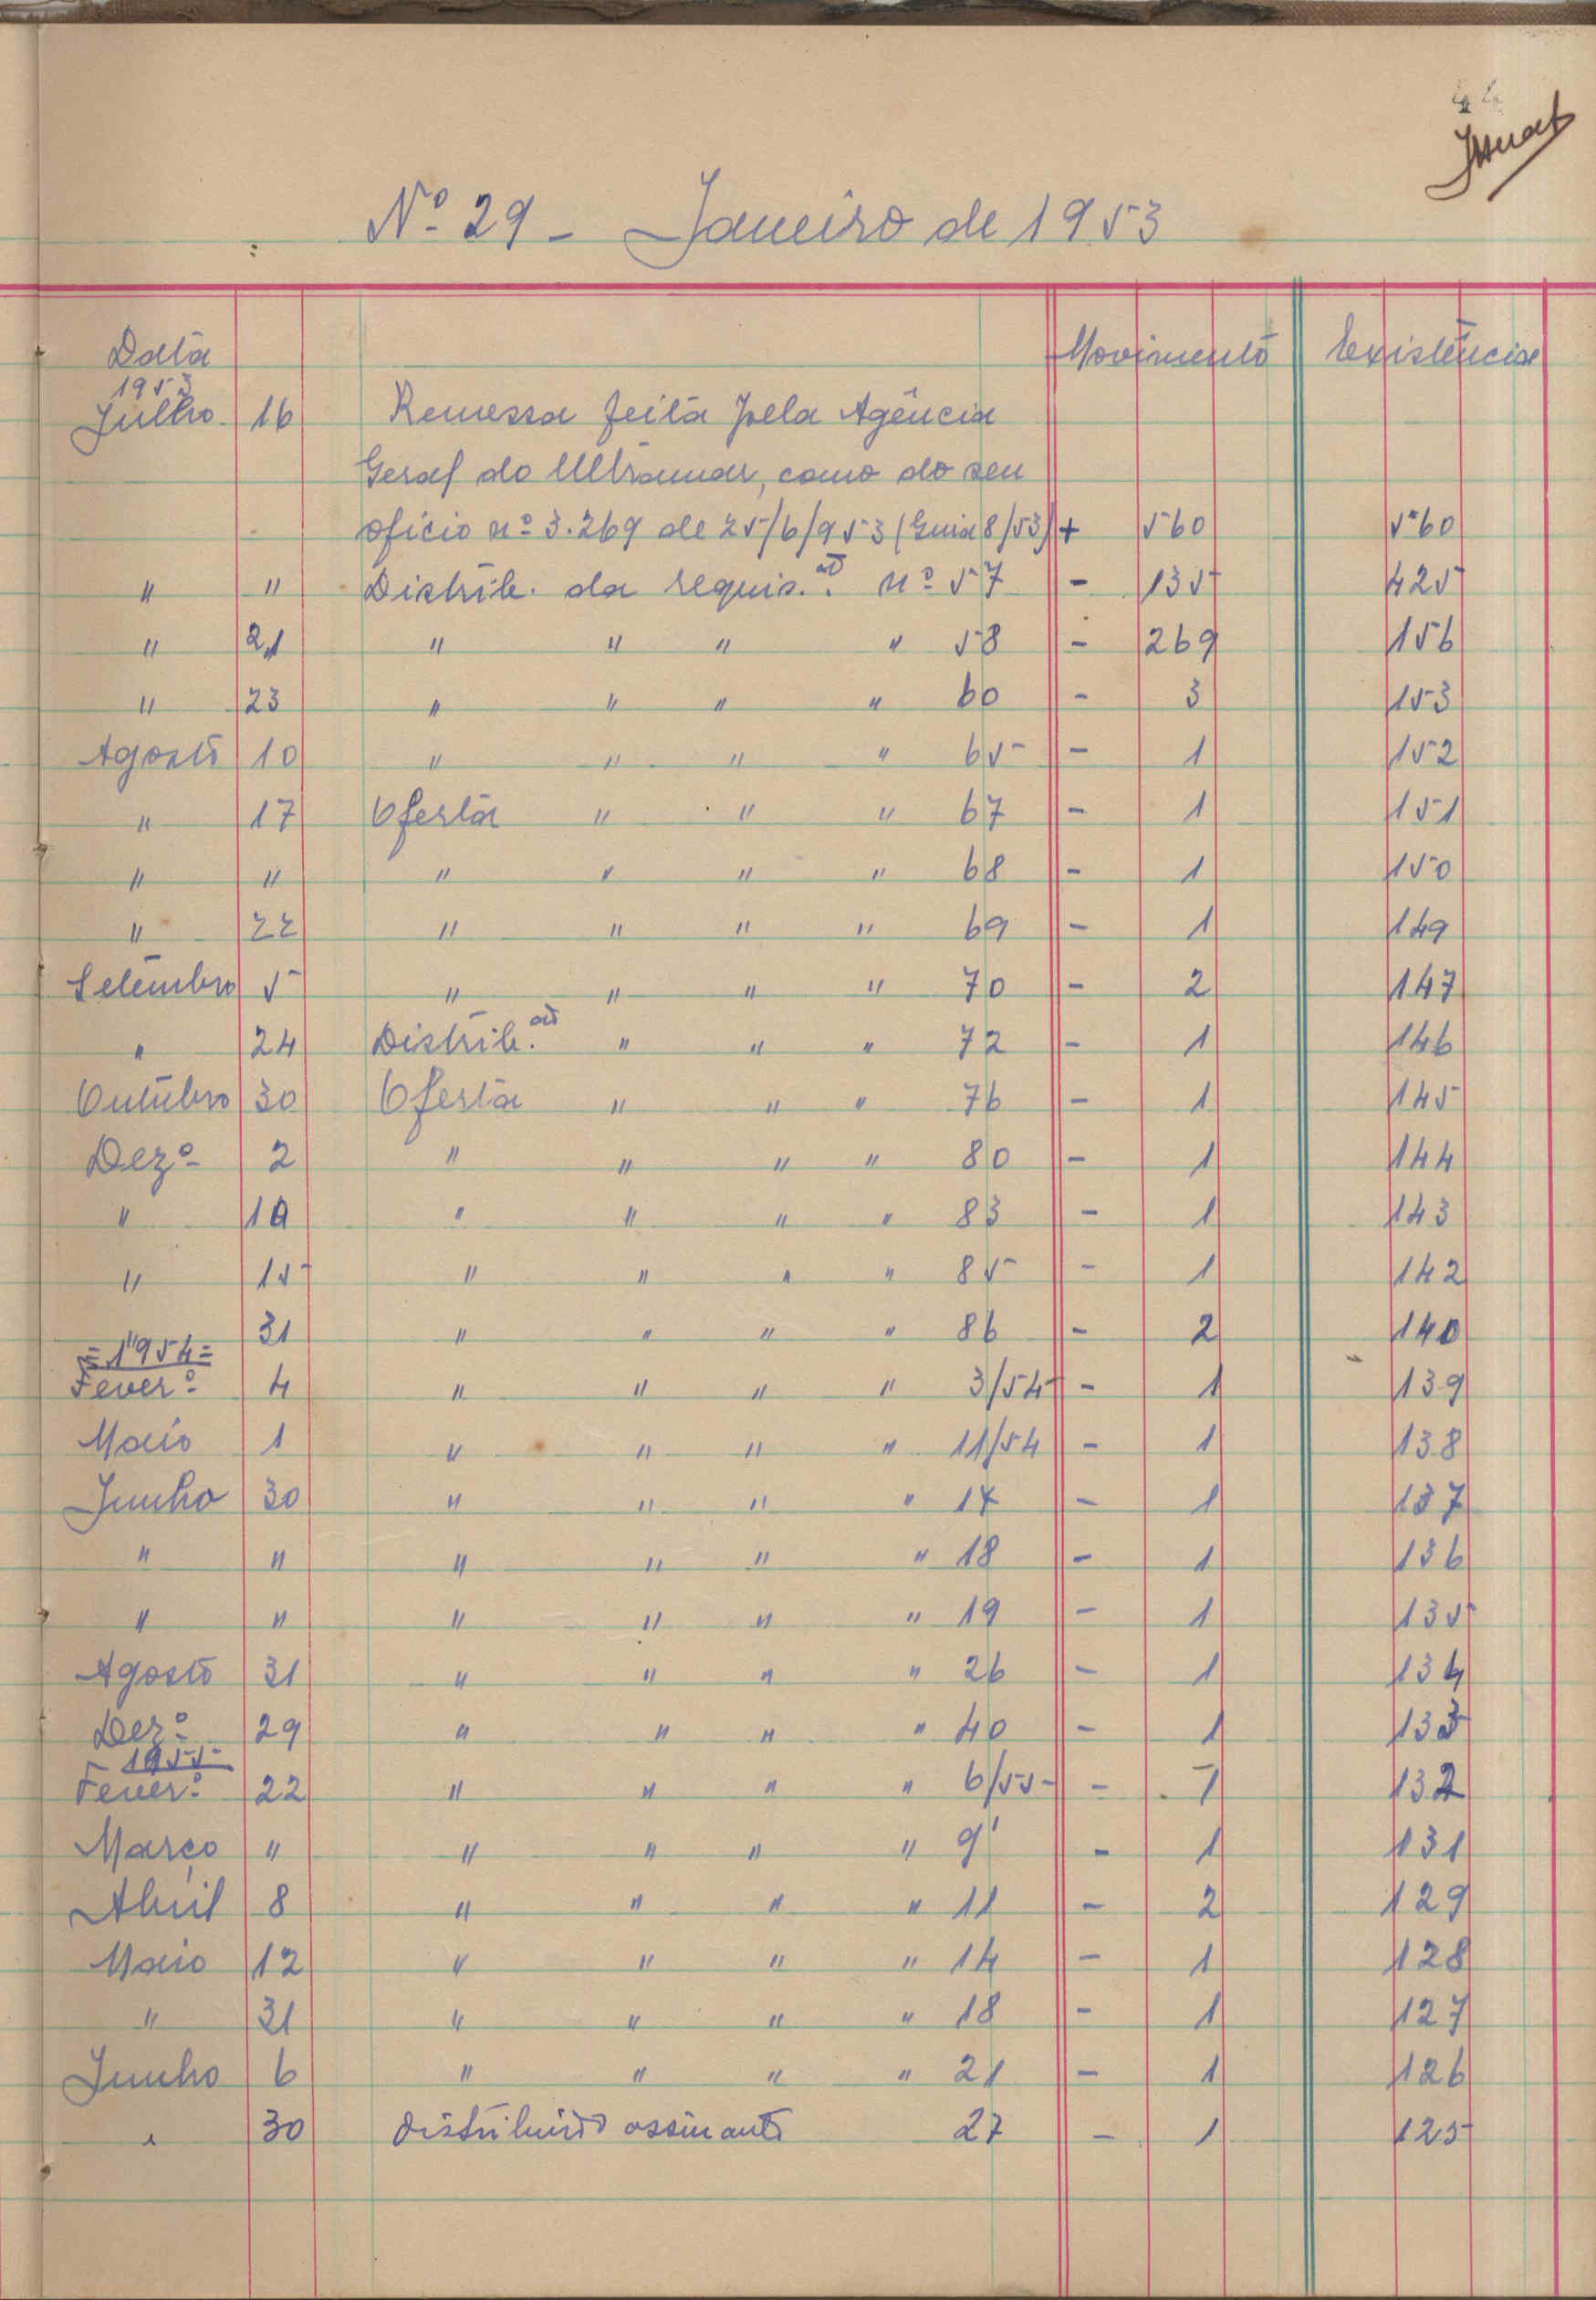 44
Nº 29 - Janeiro de 1953
Data Movimento Existência
1953
Julho 16 Remessa feita pela Agência
Geral do Ultramar, como do seu
ofício nº 3.269 de 25/6/953 (Guia 8/53) + 560 560
" " Distrib. da requis.ão nº 57 - 135 425
" 21 " " " " 58 - 269 156
" 23 " " " " 60 - 3 153
Agosto 10 " " " " 65 - 1 152
" 17 Oferta " " " 67 - 1 151
" " " " " " 68 - 1 150
" 22 " " " " 69 - 1 149
Setembro 5 " " " " 70 - 2 147
" 24 Distrib.ão " " " 72 - 1 146
Outubro 30 Oferta " " " 76 - 1 145
Dezº 2 " " " " 80 - 1 144
" 10 " " " " 83 - 1 143
" 15 " " " " 85 - 1 142
" 31 " " " " 86 - 2 140
=1954=
Fever.º 4 " " " " 3/54 - 1 139
Maio 1 " " " " 11/54 - 1 138
Junho 30 " " " " 17 - 1 137
" " " " " " 18 - 1 136
" " " " " " 19 - 1 135
Agosto 31 " " " " 26 - 1 134
Dez.º 29 " " " " 40 - 1 133
1955
Fever.º 22 " " " " 6/55 - 1 132
Março " " " " " 9 - 1 131
Abril 8 " " " " 11 - 2 129
Maio 12 " " " " 14 - 1 128
" 31 " " " " 18 - 1 127
Junho 6 " " " " 21 - 1 126
" 30 distribuido assinante 27 - 1 125